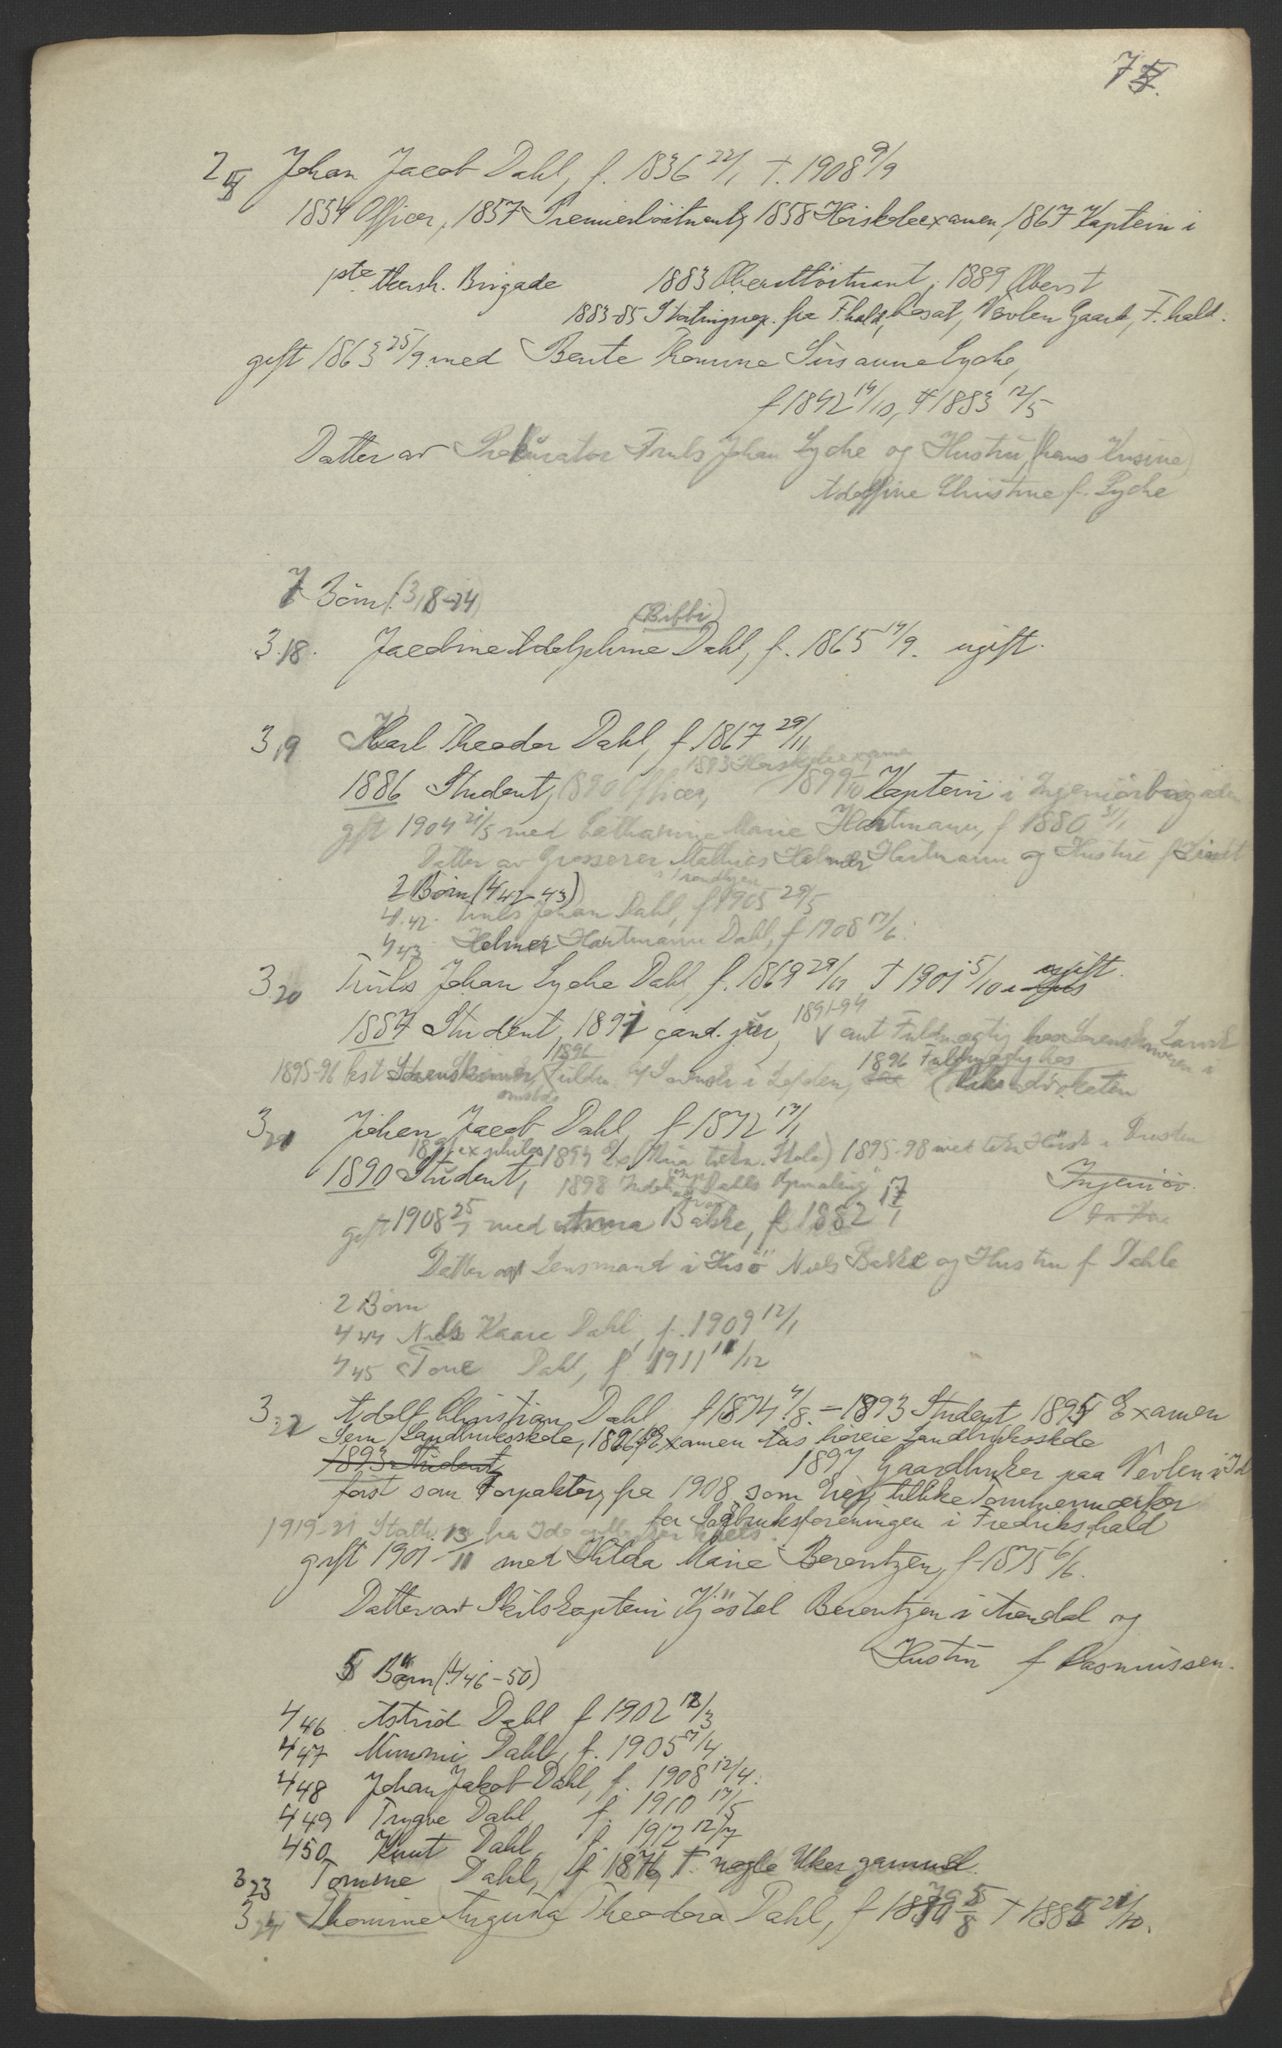 7
2 Johan Jacob Dahl, f. 1836 22/1 †. 1908 9/9
1854 Officer, 1857 Premierlöitnant, 1858 Höiskoleexamen, 1867 Kaptein i
1ste Akersh. Brigade 1883 Oberstlöitnant, 1889 Oberst
1883-85 Stortingsrep. fra F.hald, bosat, Vevlen Gaard, F.hald.
gift 1863 25/9 med Bente Thomine Susanne Lyche,
f 1842 14/10, † 1883 12/5
Datter av Prokurator Truls Johan Lyche og Hustru, (hans Kusine)
Adolfine Christine f. Lyche
7 Börn (3,18-24)
(Bibbi)
3.18. Jacobine Adolphine Dahl, f. 1865 14/9. ugift.
3,19 Karl Theodor Dahl, f 1867 29/11
1893 Höiskoleexamen
1886 Student, 1890 Officer, 1899 /10 Kaptein i Ingeniörbrigaden
gift 1904 21/5 med Catharina Marie Hartmann, f 1880 31/1
Datter av Grosserer Mathias Helmer Hartmann og Hustru f
i Trondhjem
2 Börn (4 42-43)
4.42. Truls Johan Dahl, f 1905 29/5
4 43 Helmer Hartmann Dahl, f 1908 17/6.
3 20 Truls Johan Lyche Dahl, f. 1869 29/11 † 1901 5/10 ugift.
1891-94
1887 Student, 1891 cand. jur, ant Fuldmægtig hos Sorenskriveren i Larvik
1896 1896 Fuldmægtig hos
1895-96 kst Sorenskriver, Fuldm. i Lofoten, Riksadvokaten
3 21 Johan Jacob Dahl, f 1872 17/1
1891 ex philos 1894 Ex (Kria tekn. Skole) 1895-98 ved tekn Höisk i Dresden
1890 Student, 1898 Dahls Opmaling Ingeniör.
gift 1908 25/7 med Anna Bakke, f 1882 17/1
Datter av Lensmand i Niels Bakke og Hustru f Dahle
2 Börn
4 44 Niels Kaare Dahl, f. 1909 12/1
4 45 Tove Dahl, f 1911 11/12
3 22 Adolf Christian Dahl f 1874 4/8 – 1893 Student, 1895 Examen
Sem Landbruksskole, 1896 Examen Aas höiere Landbruksskole
1893 Student, 1897 Gaardbruker paa Vevlen i Id
först som Forpakter, fra 1908 som Eier, tillike Tømmermærker
for Sagbruksforeningen i Fredrikshald
1919-21 Stortm. fra Id
gift 1901 13/11 med Hilda Marie Berentzen, f 1875 6/6.
Datter av Skibskaptein Kjöstel Berentzen i Arendal og
Hustru f Rasmussen.
5 Börn (4 46-50)
4 46 Astrid Dahl f 1902 12/3
4 47 Mimmi Dahl, f. 1905 17/4
4 48 Johan Jakob Dahl, f. 1908 12/4.
4 49 Trygve Dahl f. 1910 17/5
4 50 Knut Dahl f. 1912 12/7
3 23 Tomine Dahl, f 1876, †. nogle Uker gammel.
3 24 Thomine Augusta Theodora Dahl, f 1879 5/8 † 1885 21/10.